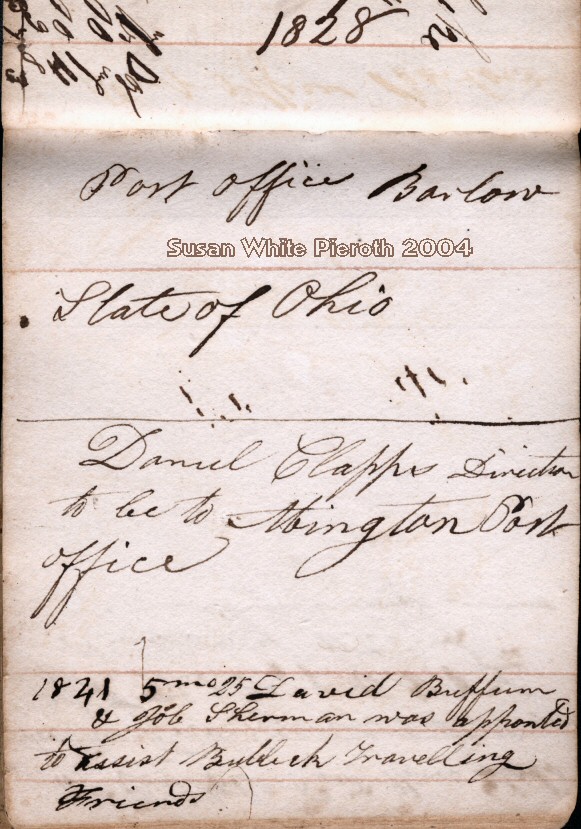 1828
the
Post office Barlow
Susan White Pieroth 2004
State of Ohio
Daniel Clapps Direction
to be to Abington Post
office
1821 5mo 25 David Buffum
& Job Sherman was appointed
to assist Travelling
Friends